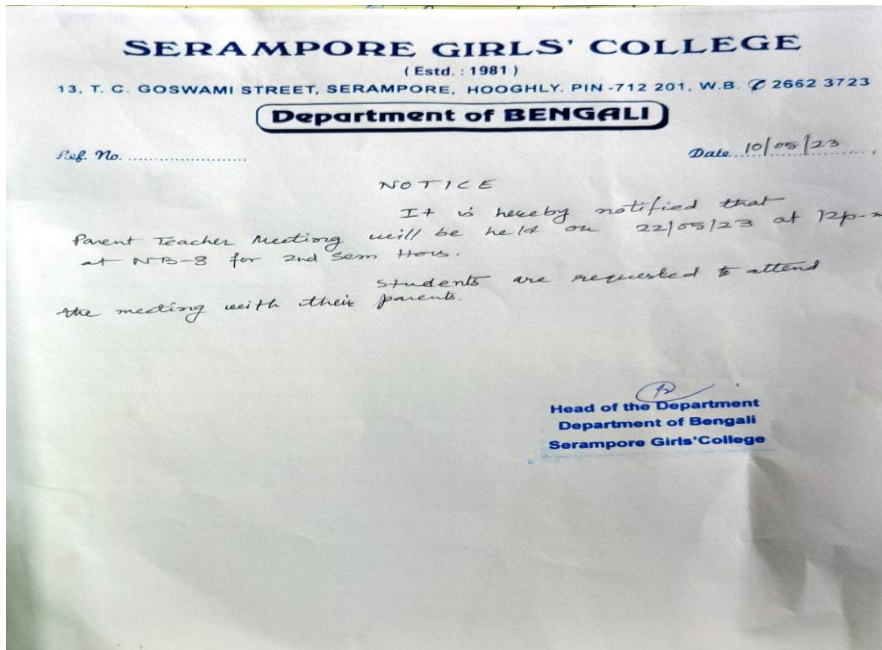 SERAMPORE GIRLS' COLLEGE
( Estd. : 1981 )
13, T. C. GOSWAMI STREET, SERAMPORE, HOOGHLY. PIN -712 201, W.B. ✆ 2662 3723
Department of BENGALI
Ref. No. ........................ Date 10/05/23
NOTICE
It is hereby notified that
Parent Teacher Meeting will be held on 22/05/23 at 12p.m
at NB-8 for 2nd Sem Hons.
Students are requested to attend
the meeting with their parents.
Head of the Department
Department of Bengali
Serampore Girls'College